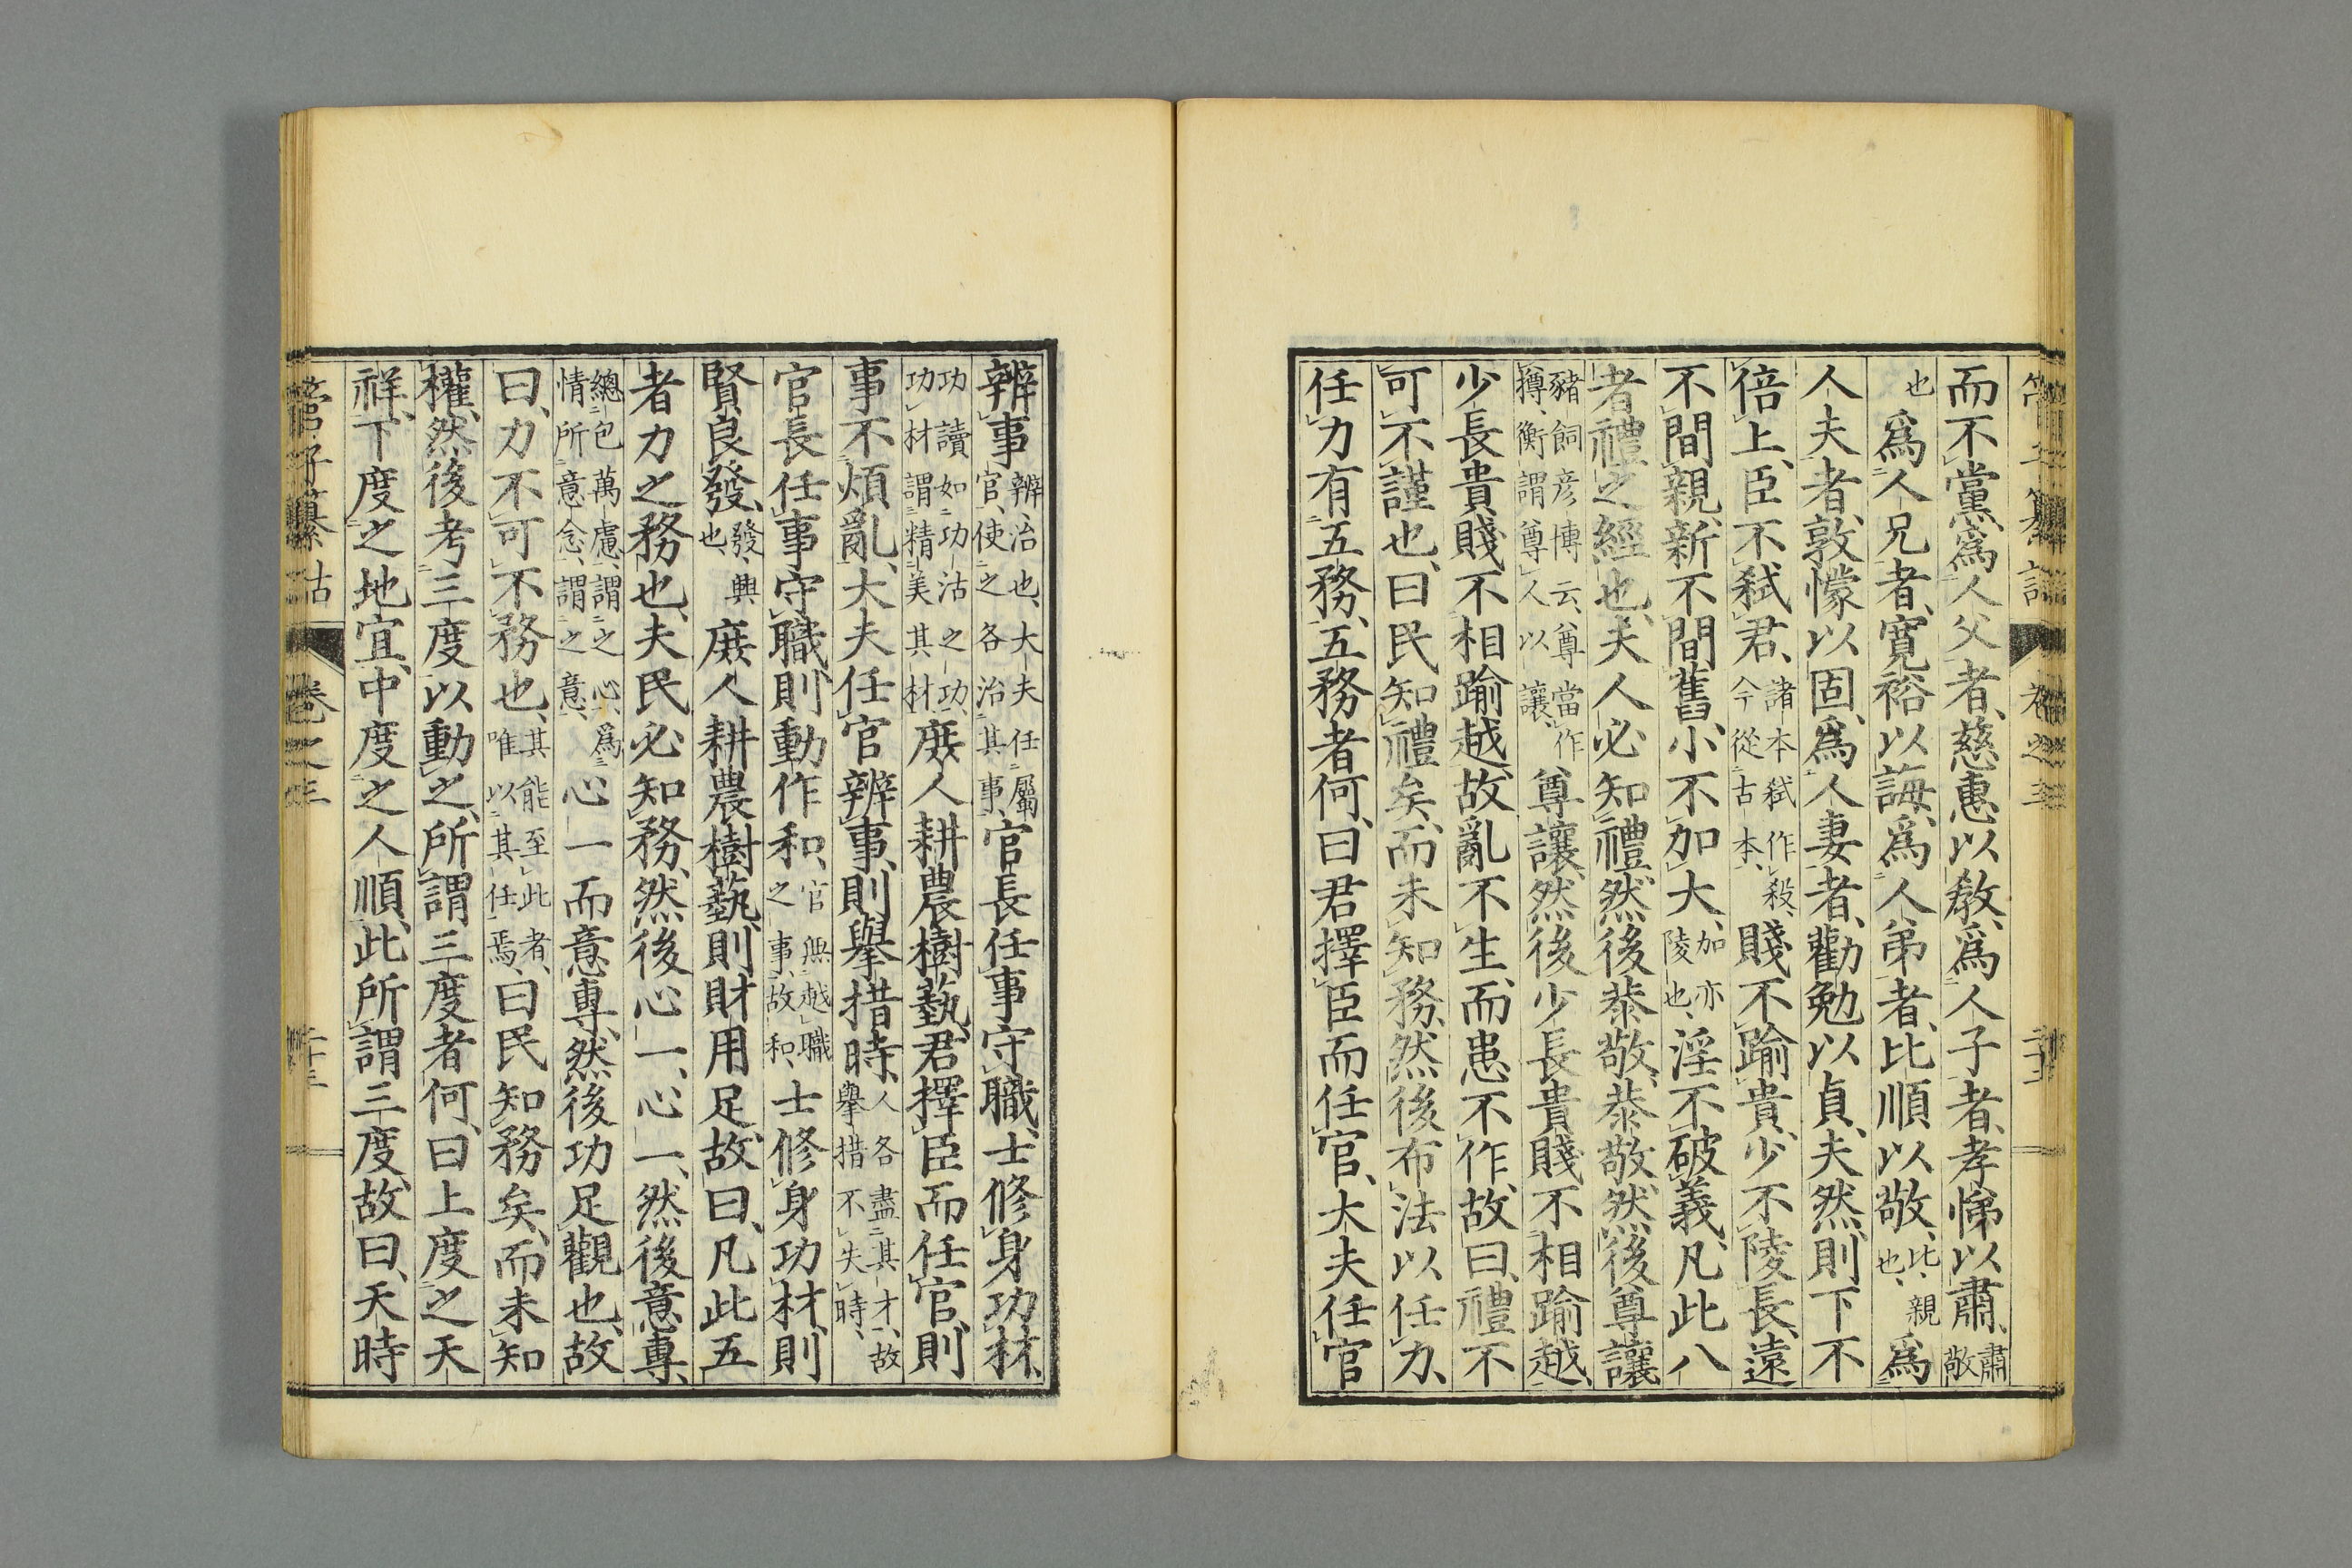 而不黨、爲人父者、慈惠以敎、爲人子者、孝悌以肅、肅敬
也爲人兄者、寬裕以誨、爲人弟者、比順以敬、比、親也、爲
人夫者、敦懞以固、爲人妻者、勸勉以貞、夫然、則下不
倍上、臣不弑君、諸本弑作殺、今從古本、賤不踰貴、少不陵長、遠
不間親、新不間舊、小不加大、加亦陵也、淫不破義、凡此八
者禮之經也、夫人必知禮、然後恭敬、恭敬、然後尊讓
豬飼彦博云、尊當作撙、衡謂尊人以讓、尊讓、然後少長貴賤不相踰越、
少長貴賤不相踰越、故亂不生、而患不作、故曰、禮不
可不謹也、曰民知禮矣、而未知務、然後布法以任力、
任力有五務、五務者何、曰君擇臣而任官、大夫任官
辨事辨、治也、大夫任屬官、使之各治其事、官長任事守職、士修身功材、
功讀如功沽之功、功材謂精美其材、庶人耕農樹藝、君擇臣而任官、則
事不煩亂、大夫任官辨事、則舉措時、人各盡其才、故舉措不失時、
官長任事守職、則動作和、官無越職之事、故和、士修身功材、則
賢良發、發、興也、庶人耕農樹藝、則財用足、故曰、凡此五
者力之務也、夫民必知務、然後心一、心一、然後意專、
總包萬慮、謂之心、爲情所意念、謂之意、心一而意專、然後功足觀也、故
曰、力不可不務也、其能至此者、唯以其任焉、曰民知務矣、而未知
權、然後考三度以動之、所謂三度者何、曰上度之天
祥、下度之地宜、中度之人順、此所謂三度、故曰、天時
管子纂詁 卷之三